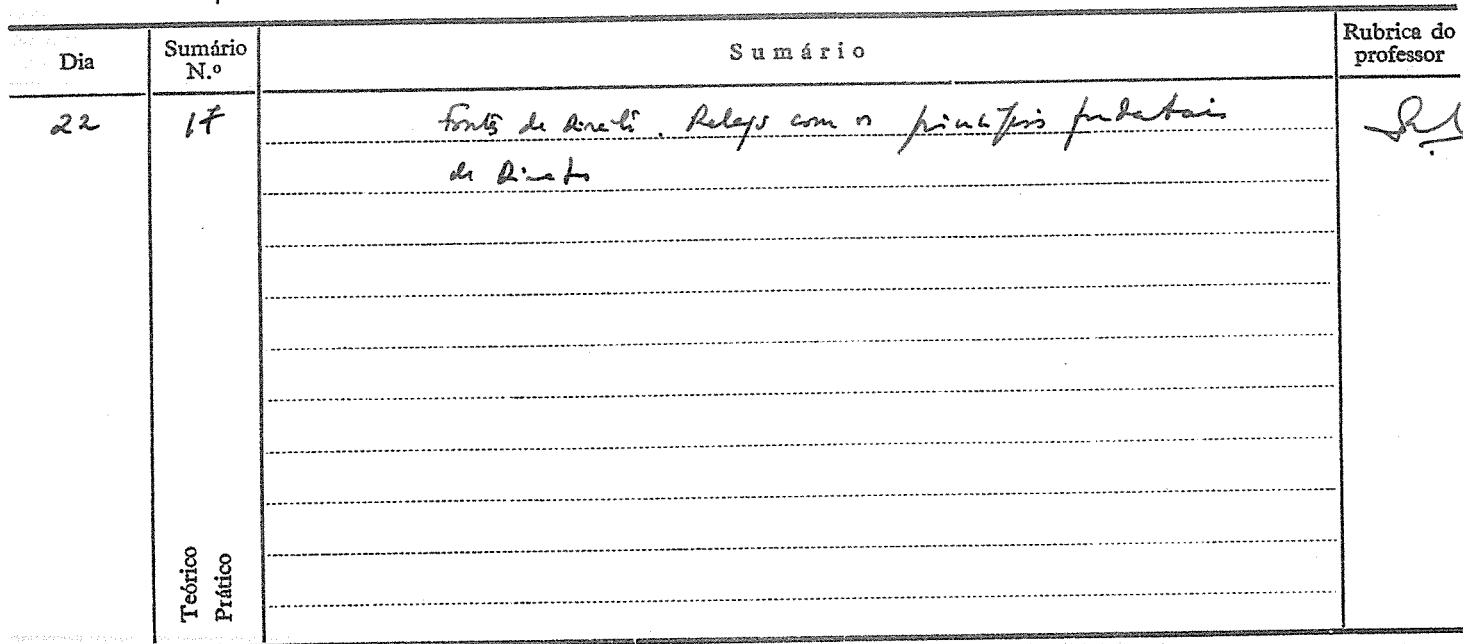 Dia
Sumário N.º
Sumário
Rubrica do professor
22
17
Fontes de Direito. Relação com os princípios fundamentais
de Direito
Teórico
Prático